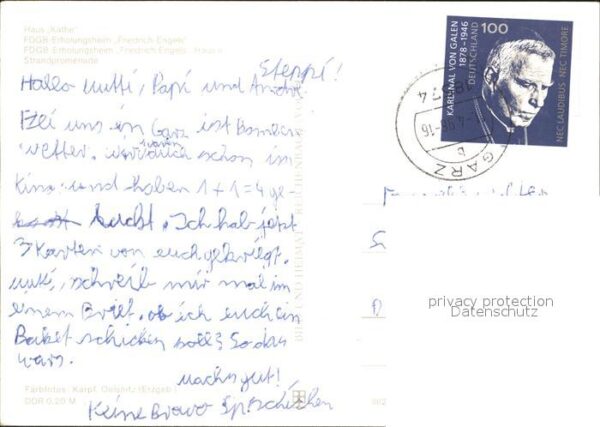 Haus „Käthe“
FDGB-Erholungsheim „Friedrich-Engels“
FDGB-Erholungsheim „Friedrich-Engels“, Haus II
Strandpromenade
Steppi!
Hallo Mutti, Papi und André
Bei uns in Garz ist Bomben
wetter. waren schon im
Kino und haben 1+1=4 ge-
lucht. Ich hab jetzt
3 Karten von euch gekriegt.
Mutti, schreib mir mal im
einem Brief, ob ich euch ein
Paket schicken soll? So das
wars.
machs gut!
Keine Bravo
BILD UND HEIMAT REICHENBACH
Farbfotos: Karpf, Oelsnitz (Erzgeb.)
DDR 0,20 M
100
KARDINAL VON GALEN
1878-1946
DEUTSCHLAND
NEC LAUDIBUS · NEC TIMORE
GARZ
b
privacy protection
Datenschutz